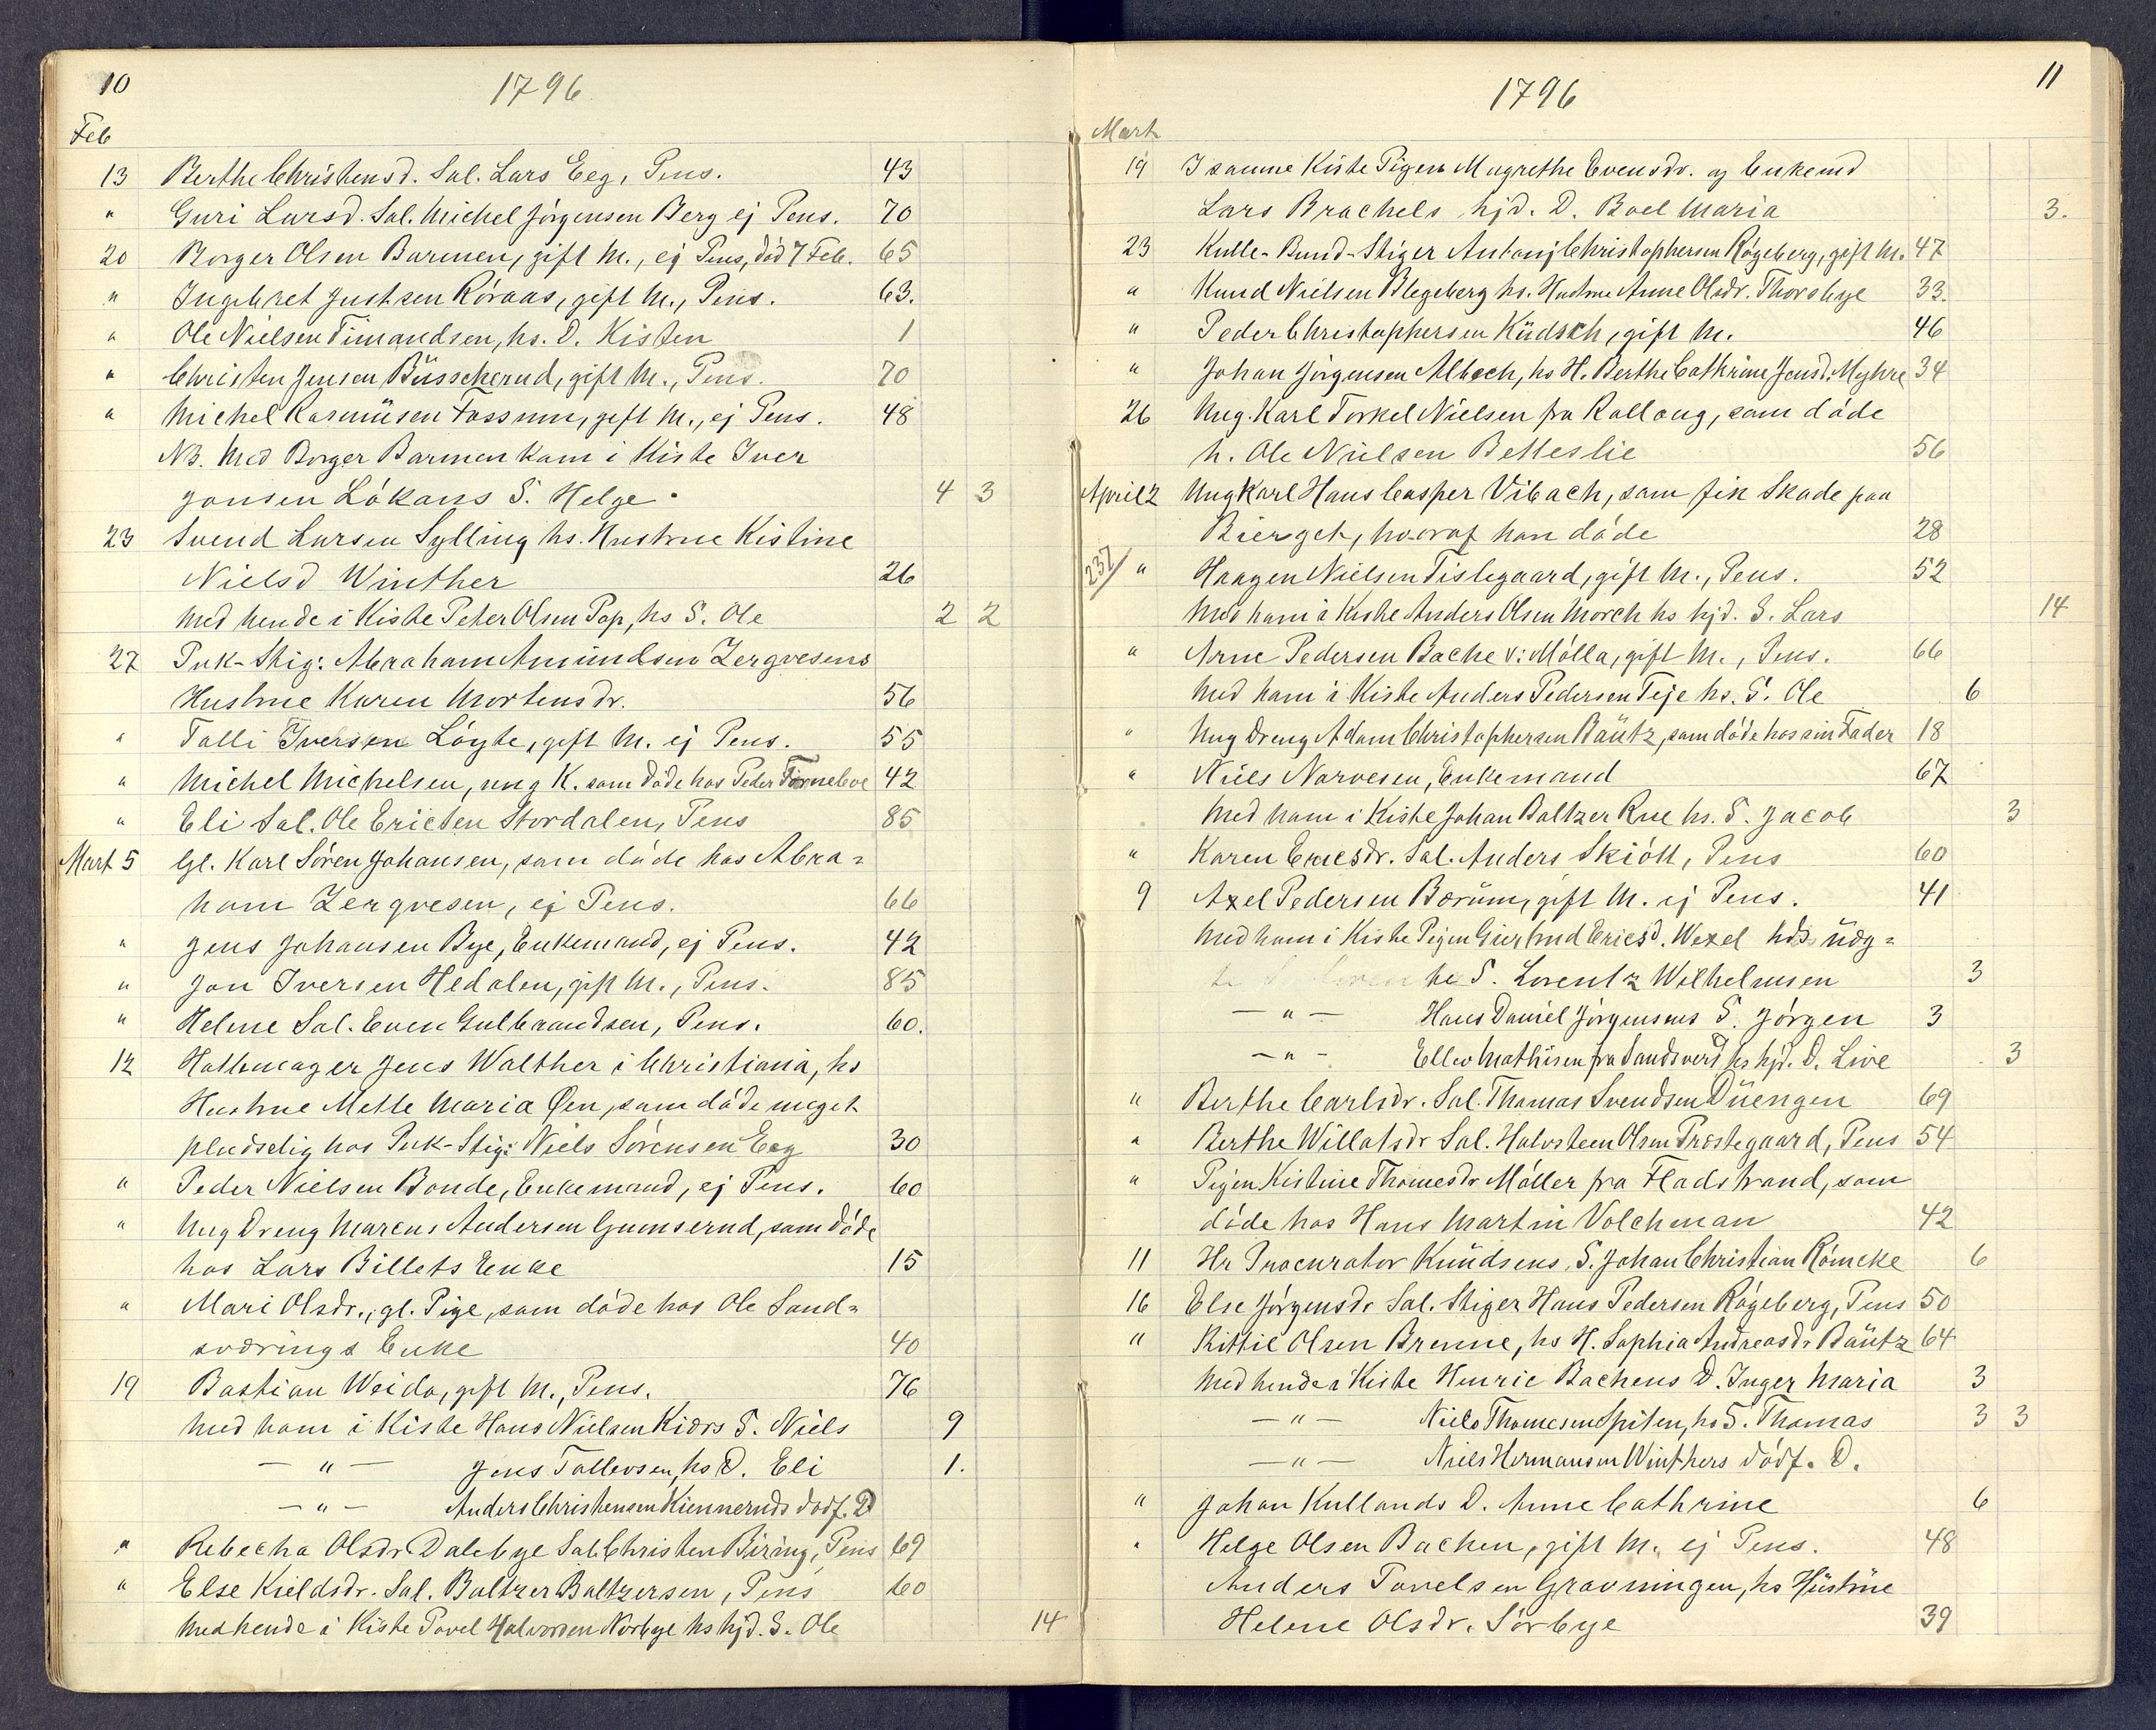 10
1796
Feb
13 Berthe Christensd. Sal. Lars Eeg, Pens. 43
" Guri Larsd. Sal. Michel Jørgensen Berg ej Pens. 70
20 Borger Olsen Barmen, gift M., ej Pens, død 7 Feb. 65
" Ingebret Justsen Róraas, gift M., Pens. 63.
" Ole Nielsen Timandsen, hs. D. Kisten 1
" Christen Jensen Büsscherud, gift M., Pens. 70
" Michel Rasmüsen Fossum, gift M., ej Pens. 48
NB. Med Borger Barmen kam i Kiste Iver
Jonsen Lókaas S. Helge. 4 3
23 Svend Larsen Sylling hs. Hustrue Kistine
Nielsd Winther 26
Med hende i Kiste Peter Olsen Pop, hs S. Ole 2 2
27 Puk-Stig: Abraham Amundsen Zergvesens
Hustrue Karen Mortensdr. 56
" Tolli Iversen Lóyte, gift M. ej Pens. 55
" Michel Michelsen, ung K. som døde hos Peder Finneboe 42
" Eli Sal. Ole Ericsen Stordalen, Pens 85
Mart 5 Gl. Karl Søren Johansen, som døde hos Abra=
ham Zergvesen, ej Pens. 66
" Jens Johansen Bye, Enkemand, ej Pens. 42
" Jon Iversen Hedalen, gift M., Pens. 85
" Helene Sal. Even Gulbrandsen, Pens. 60.
12 Hattemager Jens Walther i Christiania, hs
Hustrue Mette Maria Øen, som døde meget
pludselig hos Puk-Stig: Niels Sórensen Eeg 30
" Peder Nielsen Bonde, Enkemand, ej Pens. 60
" Ung Dreng Marcus Andersen Gumserud, som døde
hos Lars Billets Enke 15
" Mari Olsdr., gl. Pige, som døde hos Ole Sand=
sværings Enke 40
19 Bastian Weido, gift M., Pens. 76
Med ham i Kiste Hans Nielsen Kiærs S. Niels 9
— " — Jens Tollevsen, hs D. Eli 1.
— " — Anders Christensen Kienneruds dødf. D
" Rebecha Olsdr Dalebye Sal. Christen Biring, Pens 69
" Else Kieldsdr. Sal. Baltzer Baltzersen, Pens 60
Med hende i Kiste Povel Halvorsen Norbye hs hjd. S. Ole 14
11
1796
Mart
19 I samme Kiste Pigen Magrethe Evensdr. og Enkemd
Lars Brachels hjd. D. Boel Maria 3.
23 Kulle-Bund-Stiger Antonj Christophersen Rógeberg, gift M. 47
" Knud Nielsen Blegeberg hs. Hustrue Anne Olsdr. Thorsbye 33.
" Peder Christophersen Küdsch, gift M. 46
" Johan Jørgensen Albech, hs H. Berthe Cathrine Jensd. Myhre 34
26 Ung. Karl Torkel Nielsen fra Rollaug, som døde
h. Ole Nielsen Betteslie 56
April 2 Ung Karl Hans Casper Vibach, som fik Skade paa
Bierget, hvoraf han døde 28
232/ " Haagen Nielsen Tislegaard, gift M., Pens. 52
Med ham i Kiste Anders Olsen Morch hs hjd. S. Lars 14
" Arne Pedersen Bache v: Mólla, gift M., Pens. 66
Med ham i Kiste Anders Pedersen Teje hs. S. Ole 6
" Ung Dreng Adam Christophersen Bäutz, som døde hos sin Fader 18
" Niels Narvesen, Enkemand 67
Med ham i Kiste Johan Baltzer Rue hs. S. Jacob 3
" Karen Ericsdr. Sal. Anders Skiótt, Pens 60
9 Axel Pedersen Bærüm, gift M. ej Pens. 41
Med ham i Kiste Pigen Giertrud Ericsd. Wexel hds üæg=
te S. Lorentz Wilhelmsen 3
— " — Hans Daniel Jørgensens S. Jørgen 3
— " — Ellev Mathisen fra Sandsverd hs hjd. D. Live 3
" Berthe Carlsdr. Sal. Thomas Svendsen Düengen 69
" Berthe Willatsdr Sal. Halvsteen Olsen Præstegaard, Pens 54
" Pigen Kistine Thomesdr Móller fra Fladstrand, som
døde hos Hans Martin Volchman 42
11 Hr Procurator Knüdsens, S. Johan Christian Rómcke 6
16 Else Jørgensdr Sal. Stiger Hans Pedersen Rógeberg, Pens 50
" Kittil Olsen Brenne, hs H. Sophia Andreasdr Bäutz 64
Med hende i Kiste Henric Bachens D. Inger Maria 3
— " — Niels Thomesen Spiten, hs S. Thomas 3 3
— " — Niels Hermansen Winthers dødf. D.
" Johan Kullands D. Anne Cathrine 6
" Helge Olsen Bachen, gift M. ej Pens. 48
Anders Povelsen Gravningen, hs Hüstrüe
Helene Olsdr. Sórbye 39